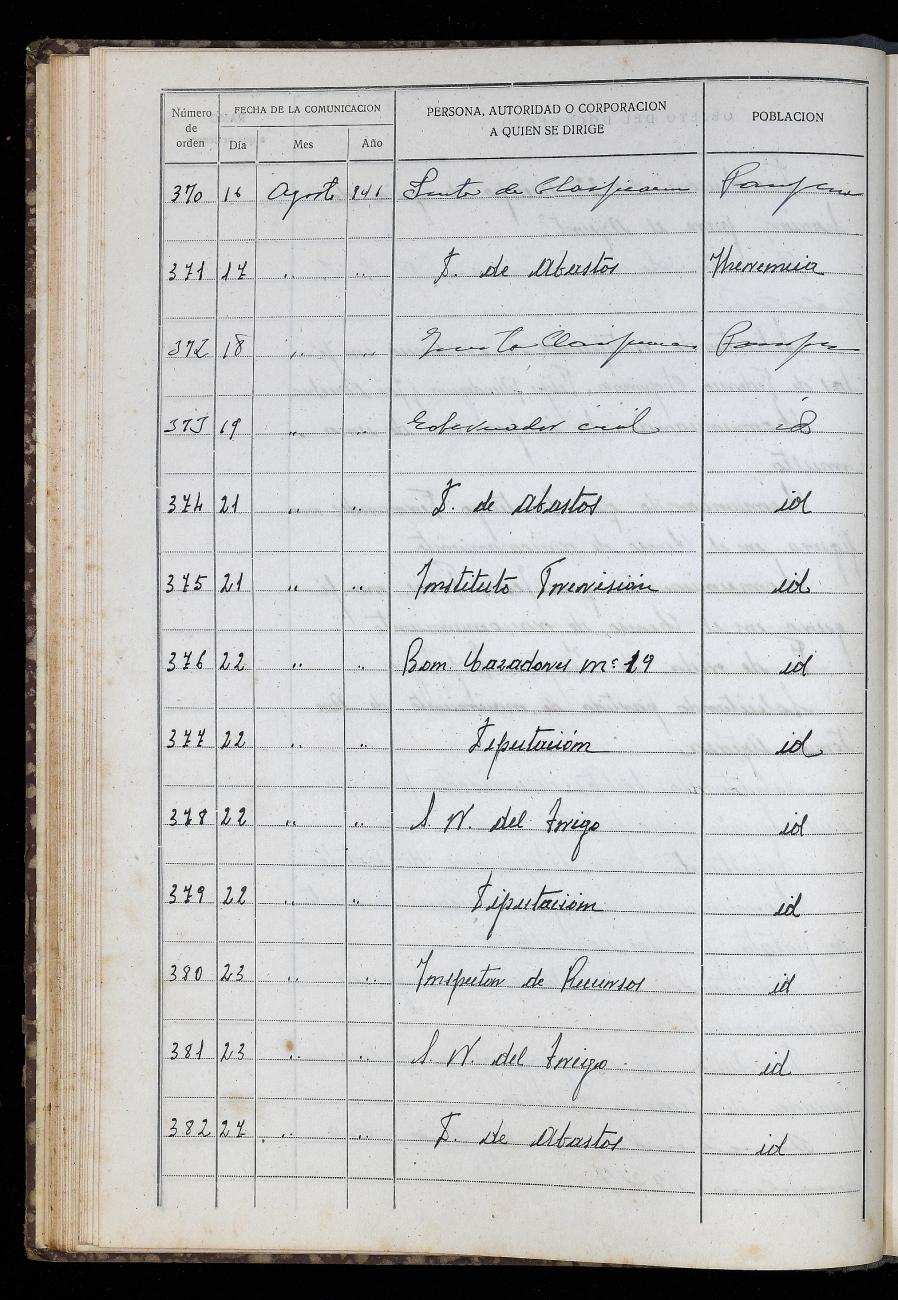 Número de orden FECHA DE LA COMUNICACION PERSONA, AUTORIDAD O CORPORACION A QUIEN SE DIRIGE POBLACION
Día Mes Año
370 16 Agosto 941 Junta de Clasificacion Pamplona
371 17 " " D. de Abastos
372 18 " " Junta Clasificacion Pamplona
373 19 " " Gobernador civil id
374 21 " " D. de Abastos id
375 21 " " Instituto Prevision id
376 22 " " Bon. Cazadores nº 19 id
377 22 " " Diputación id
378 22 " " S. N. del Trigo id
379 22 " " Diputación id
380 23 " " Inspector de Recursos id
381 23 " " S. N. del Trigo id
382 27 " " D. de Abastos id